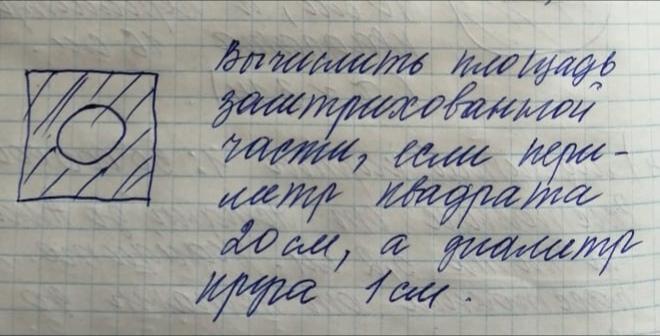 Вычислить площадь
заштрихованной
части, если пери-
метр квадрата
20 см, а диаметр
круга 1 см.